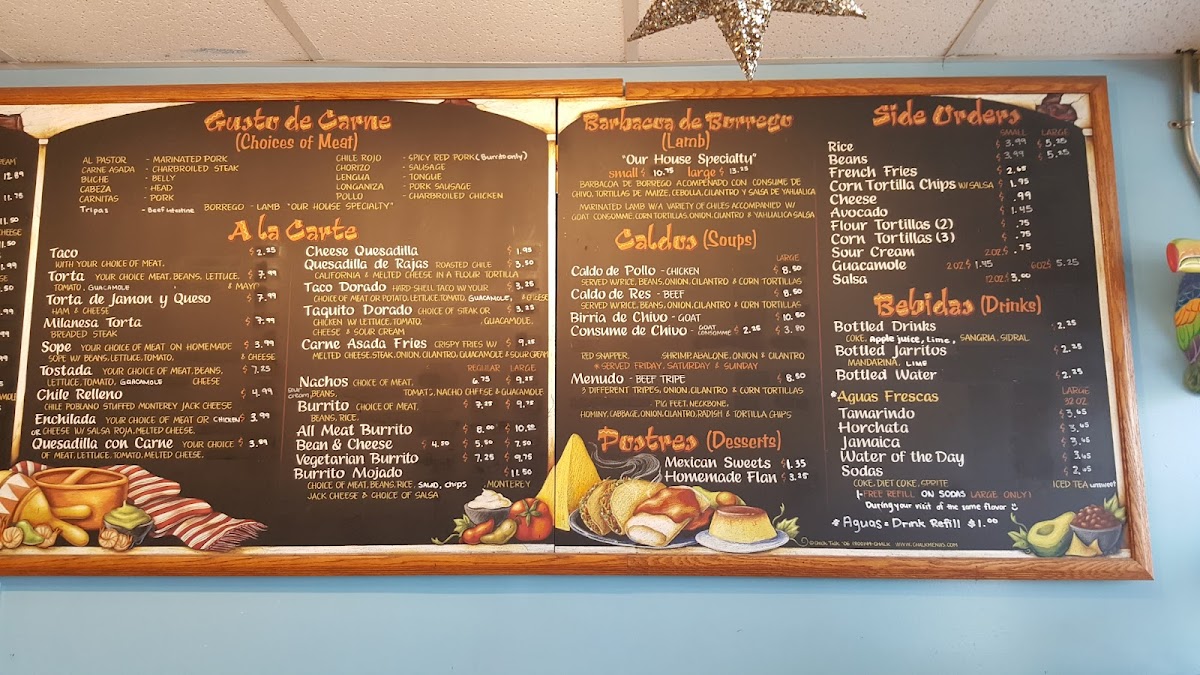 Gusto de Carne
(Choices of Meat)
AL PASTOR - MARINATED PORK
CARNE ASADA - CHARBROILED STEAK
BUCHE - BELLY
CABEZA - HEAD
CARNITAS - PORK
Tripas - Beef intestine
CHILE ROJO - SPICY RED PORK (Burrito only)
CHORIZO - SAUSAGE
LENGUA - TONGUE
LONGANIZA - PORK SAUSAGE
POLLO - CHARBROILED CHICKEN
BORREGO - LAMB "OUR HOUSE SPECIALTY"
A la Carte
Taco $ 2.25
WITH YOUR CHOICE OF MEAT.
Torta YOUR CHOICE MEAT, BEANS, LETTUCE, $ 7.99
TOMATO, GUACAMOLE & MAYO
Torta de Jamon y Queso $ 7.99
HAM & CHEESE
Milanesa Torta $ 7.99
BREADED STEAK
Sope YOUR CHOICE OF MEAT ON HOMEMADE $ 3.99
SOPE W/ BEANS, LETTUCE, TOMATO, & CHEESE
Tostada YOUR CHOICE OF MEAT, BEANS, $ 7.25
LETTUCE, TOMATO, GUACAMOLE CHEESE
Chile Relleno $ 4.99
CHILE POBLANO STUFFED MONTEREY JACK CHEESE
Enchilada YOUR CHOICE OF MEAT OR CHICKEN $ 3.99
OR CHEESE W/ SALSA ROJA, MELTED CHEESE.
Quesadilla con Carne YOUR CHOICE $ 3.99
OF MEAT, LETTUCE, TOMATO, MELTED CHEESE.
Cheese Quesadilla $ 1.95
Quesadilla de Rajas ROASTED CHILE $ 3.50
CALIFORNIA & MELTED CHEESE IN A FLOUR TORTILLA
Taco Dorado HARD-SHELL TACO W/ YOUR $ 3.25
CHOICE OF MEAT OR POTATO, LETTUCE, TOMATO, GUACAMOLE, & CHEESE
Taquito Dorado CHOICE OF STEAK OR $ 3.25
CHICKEN W/ LETTUCE, TOMATO, GUACAMOLE,
CHEESE & SOUR CREAM
Carne Asada Fries CRISPY FRIES W/ $ 9.25
MELTED CHEESE, STEAK, ONION, CILANTRO, GUACAMOLE & SOUR CREAM
REGULAR LARGE
Nachos CHOICE OF MEAT, 6.75 $ 9.25
sour cream, BEANS, TOMATO, NACHO CHEESE & GUACAMOLE
Burrito CHOICE OF MEAT, $ 7.25 $ 9.75
BEANS, RICE.
All Meat Burrito $ 8.00 $ 10.25
Bean & Cheese $ 4.50 $ 5.50 $ 7.50
Vegetarian Burrito $ 7.25 $ 9.75
Burrito Mojado $ 11.50
CHOICE OF MEAT, BEANS, RICE, SALAD, Chips, MONTEREY
JACK CHEESE & CHOICE OF SALSA
Barbacoa de Borrego
(Lamb)
"Our House Specialty"
small $ 10.75 large $ 13.25
BARBACOA DE BORREGO ACOMPENADO CON CONSUME DE
CHIVO, TORTILLAS DE MAIZE, CEBOLLA, CILANTRO Y SALSA DE YAHUALICA
MARINATED LAMB W/A VARIETY OF CHILES ACCOMPANIED W/
GOAT CONSOMME, CORN TORTILLAS, ONION, CILANTRO & YAHUALICA SALSA
Caldos (Soups)
LARGE
Caldo de Pollo - CHICKEN $ 8.50
SERVED W/RICE, BEANS, ONION, CILANTRO & CORN TORTILLAS
Caldo de Res - BEEF $ 8.50
SERVED W/RICE, BEANS, ONION, CILANTRO & CORN TORTILLAS
Birria de Chivo - GOAT $ 10.50
Consume de Chivo - GOAT CONSOMME $ 2.25 $ 3.80
RED SNAPPER, SHRIMP, ABALONE, ONION & CILANTRO
* SERVED FRIDAY, SATURDAY & SUNDAY
Menudo - BEEF TRIPE $ 8.50
3 DIFFERENT TRIPES, ONION, CILANTRO & CORN TORTILLAS
- PIG FEET, NECKBONE,
HOMINY, CABBAGE, ONION, CILANTRO, RADISH & TORTILLA CHIPS
Postres (Desserts)
Mexican Sweets $ 1.35
Homemade Flan $ 3.25
Side Orders
SMALL LARGE
Rice $ 3.99 $ 5.25
Beans $ 3.99 $ 5.25
French Fries $ 2.65
Corn Tortilla Chips W/ SALSA $ 1.95
Cheese $ .99
Avocado $ 1.45
Flour Tortillas (2) $ .75
Corn Tortillas (3) $ .75
Sour Cream 2OZ $ .75
Guacamole 2OZ $ 1.45 6OZ $ 5.25
Salsa 12OZ $ 3.00
Bebidas (Drinks)
Bottled Drinks $ 2.25
COKE, Apple juice, Lime, SANGRIA, SIDRAL
Bottled Jarritos $ 2.25
MANDARINA, LIME
Bottled Water $ 2.25
*Aguas Frescas LARGE
32 OZ.
Tamarindo $ 3.65
Horchata $ 3.65
Jamaica $ 3.45
Water of the Day $ 3.65
Sodas $ 2.45
COKE, DIET COKE, SPRITE ICED TEA UNSWEET
1-FREE REFILL ON SODAS LARGE ONLY!
During your visit of the same flavor
* Aguas = Drink Refill $1.00
WWW.CHALKMENUS.COM